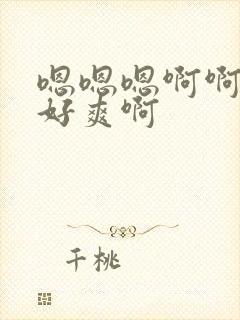 嗯嗯嗯啊啊
好爽啊
千桃